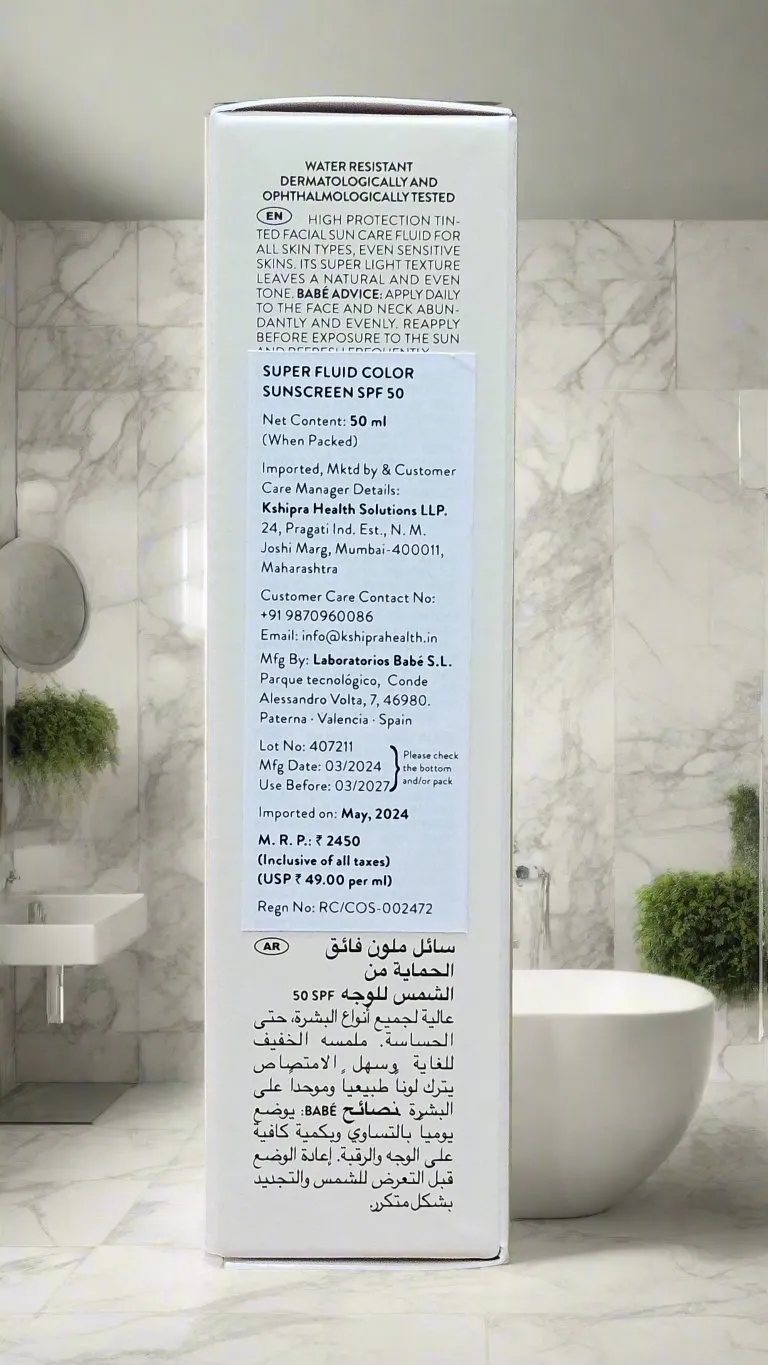 WATER RESISTANT
DERMATOLOGICALLY AND
OPHTHALMOLOGICALLY TESTED
EN HIGH PROTECTION TIN-
TED FACIAL SUN CARE FLUID FOR
ALL SKIN TYPES, EVEN SENSITIVE
SKINS. ITS SUPER LIGHT TEXTURE
LEAVES A NATURAL AND EVEN
TONE. BABÉ ADVICE: APPLY DAILY
TO THE FACE AND NECK ABUN-
DANTLY AND EVENLY. REAPPLY
BEFORE EXPOSURE TO THE SUN
AND REFRESH FREQUENTLY.
SUPER FLUID COLOR
SUNSCREEN SPF 50
Net Content: 50 ml
(When Packed)
Imported, Mktd by & Customer
Care Manager Details:
Kshipra Health Solutions LLP.
24, Pragati Ind. Est., N. M.
Joshi Marg, Mumbai-400011,
Maharashtra
Customer Care Contact No:
+91 9870960086
Email: info@kshiprahealth.in
Mfg By: Laboratorios Babé S.L.
Parque tecnológico, Conde
Alessandro Volta, 7, 46980.
Paterna · Valencia · Spain
Lot No: 407211
Mfg Date: 03/2024
Use Before: 03/2027
Please check
the bottom
and/or pack
Imported on: May, 2024
M. R. P.: ₹ 2450
(Inclusive of all taxes)
(USP ₹ 49.00 per ml)
Regn No: RC/COS-002472
AR سائل ملون فائق
الحماية من
الشمس للوجه 50 SPF
عالية لجميع أنواع البشرة، حتى
الحساسة. ملمسه الخفيف
للغاية وسهل الامتصاص
يترك لوناً طبيعياً وموحداً على
البشرة نصائح BABÉ: يوضع
يومياً بالتساوي وبكمية كافية
على الوجه والرقبة. إعادة الوضع
قبل التعرض للشمس والتجديد
بشكل متكرر.